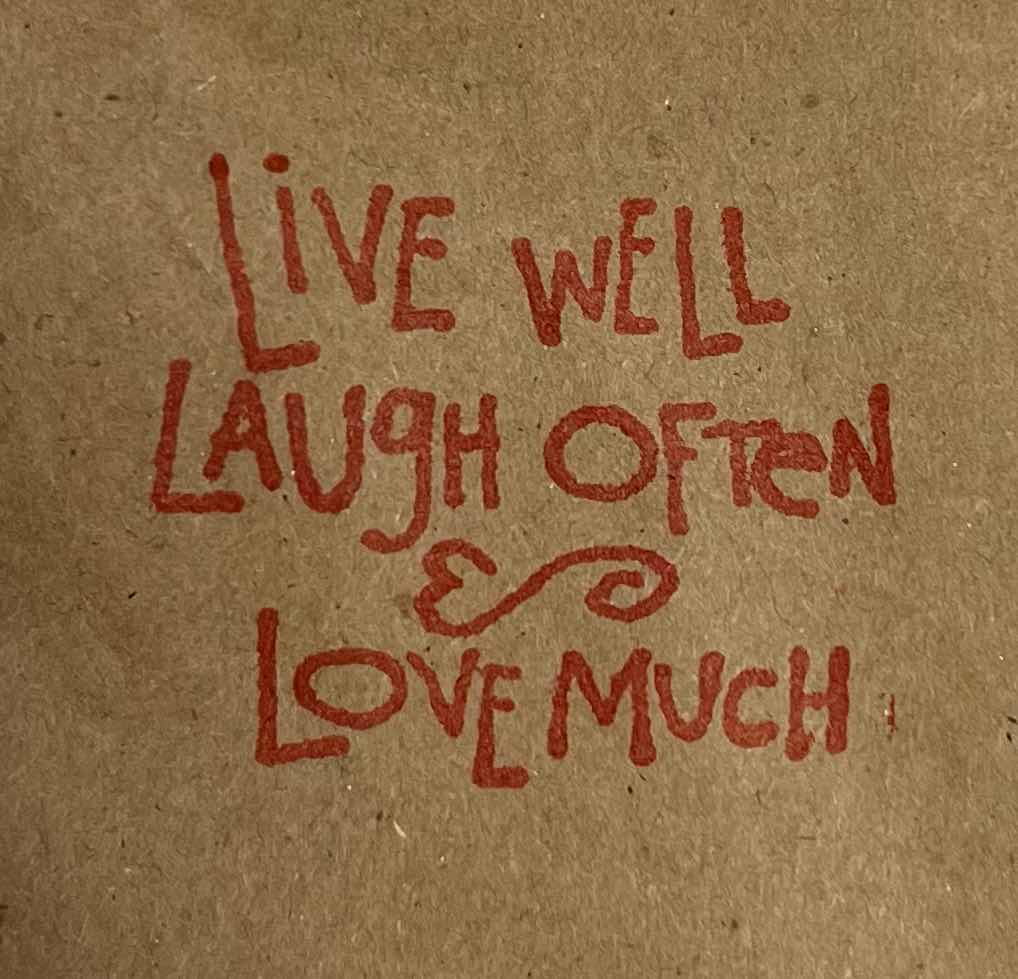 LiVE WELL
LAUgH OFTeN
&
LOVE MUCH